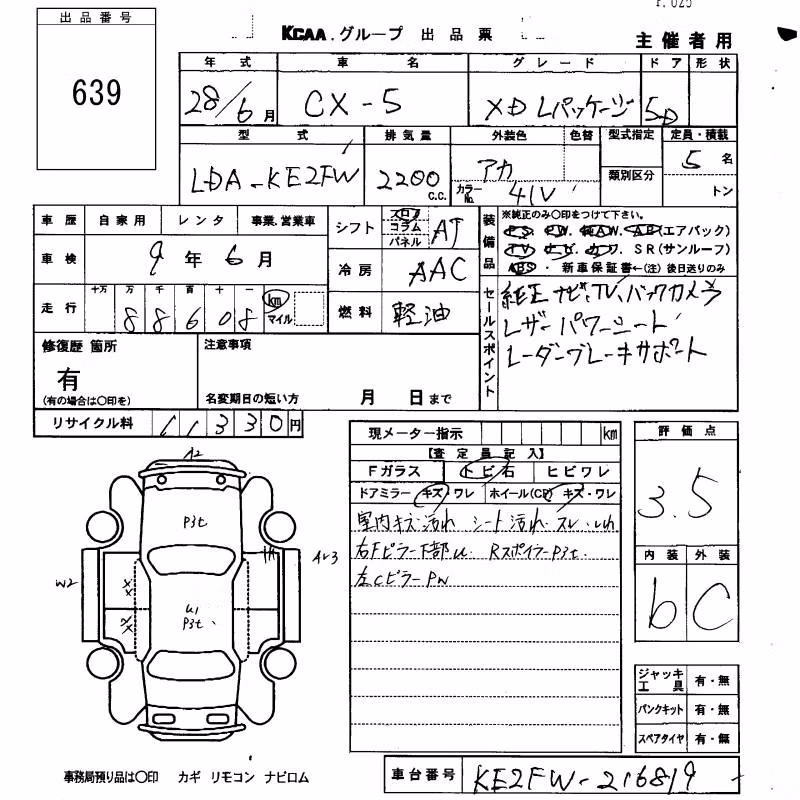 P.025
出品番号
639
KCAA.グループ 出品票
主催者用
年式 車名 グレード ドア 形状
28/6月 CX-5 XD Lパッケージ 5D
型式 排気量 外装色 色替 型式指定 定員・積載
LDA-KE2FW 2200 C.C. アカ カラーNo. 41V 類別区分 5名
トン
車歴 自家用 レンタ 事業.営業車
車検 9年6月
走行 十万 万 千 百 十 一
88608 km マイル
シフト フロア コラム パネル AT
冷房 AAC
燃料 軽油
装備品
※純正のみ〇印をつけて下さい。
PS. PW. 純AW. AB(エアバック)
TV. ナビ. カワ. SR(サンルーフ)
ABS・ 新車保証書←(注) 後日送りのみ
セールスポイント
純正ナビ、TV、バックカメラ
レザーパワーシート
レーダーブレーキサポート
修復歴 箇所
有
(有の場合は〇印を)
注意事項
名変期日の短い方 月 日まで
リサイクル料 11330円
現メーター指示 km
【査定員記入】
Fガラス トビ石 ヒビワレ
ドアミラー キズ・ワレ ホイール(CP) キズ・ワレ
室内キズ・汚れ シート汚れ・スレ・しわ
右Fピラー下部U Rスポイラー P3t.
左Cピラー PW
評価点
3.5
内装 外装
b C
ジャッキ工具 有・無
パンクキット 有・無
スペアタイヤ 有・無
A2
P3t
W2
XX
U1
P3t
事務局預り品は〇印 カギ リモコン ナビロム
車台番号 KE2FW-216819